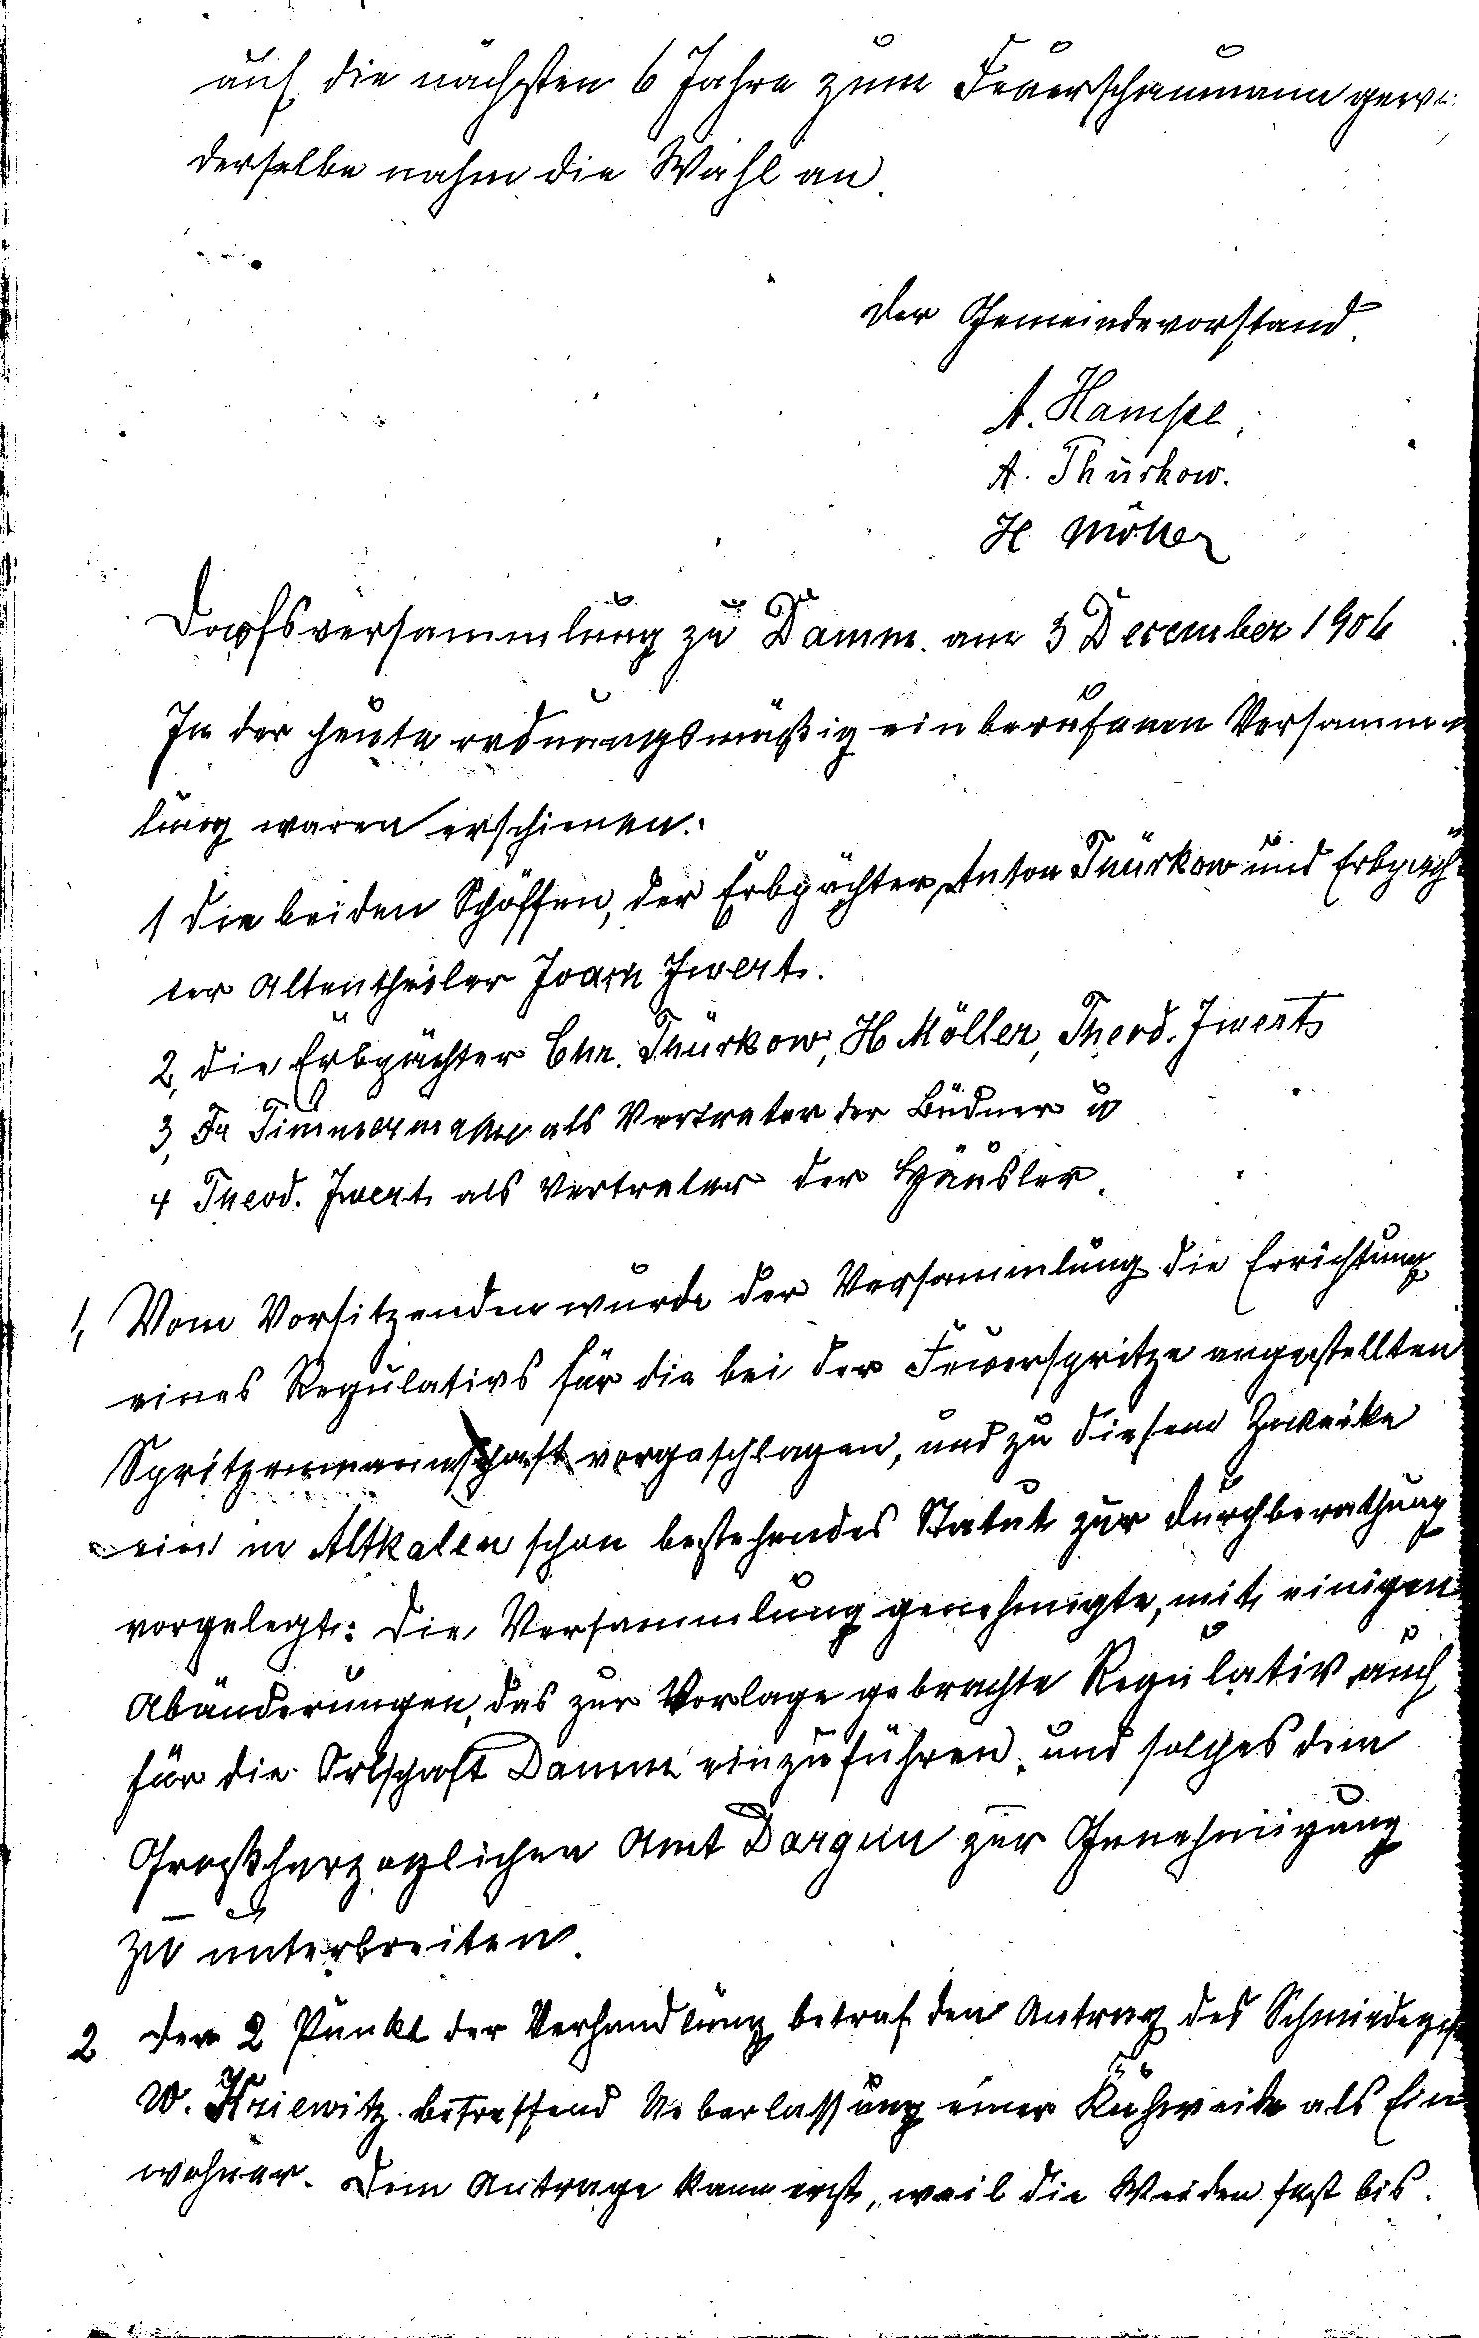 auf die nächsten 6 Jahre zum Feuerschaumann
derselbe nahm die Wahl an.
Der Gemeindevorstand.
A. Hampe.
A. Thürkow.
H Möller
Dorfsversammlung zu Damm. am 3 December 1906
In der heute ordnungsmäßig einberufenen Versamm
lung waren erschienen:
1 die beiden Schöffen, der Erbpächter Anton Thürkow und Erbpäch
ter Altentheiler Joach Jwert.
2, die Erbpächter Chr. Thürkow, H Möller, Theod. Jwert
3, Fr Timmermann als Vertreter der Büdner u
4 Theod. Jwert als Vertreter der Häusler.
1, Vom Vorsitzenden wurde der Versammlung die Errichtung
eines Regulativs für die bei der Feuerspritze angestellten
Spritzenmannschaft vorgeschlagen, und zu diesem Zwecke
ein in Altkalen schon bestehendes Statut zur Durchberathung
vorgelegt: Die Versammlung genehmigte, mit einigen
Abänderungen, das zur Vorlage gebrachte Regulativ auch
für die Ortschaft Damm einzuführen, und solches dem
Großherzoglichen Amt Dargun zur Genehmigung
zu unterbreiten.
2 Der 2 Punkt der Verhandlung betraf den Antrag des
W. Kriewitz betreffend Ueberlassung einer Kuhweide als Ein
wohner. Dem Antrage kann erst, weil die Weiden fast bis